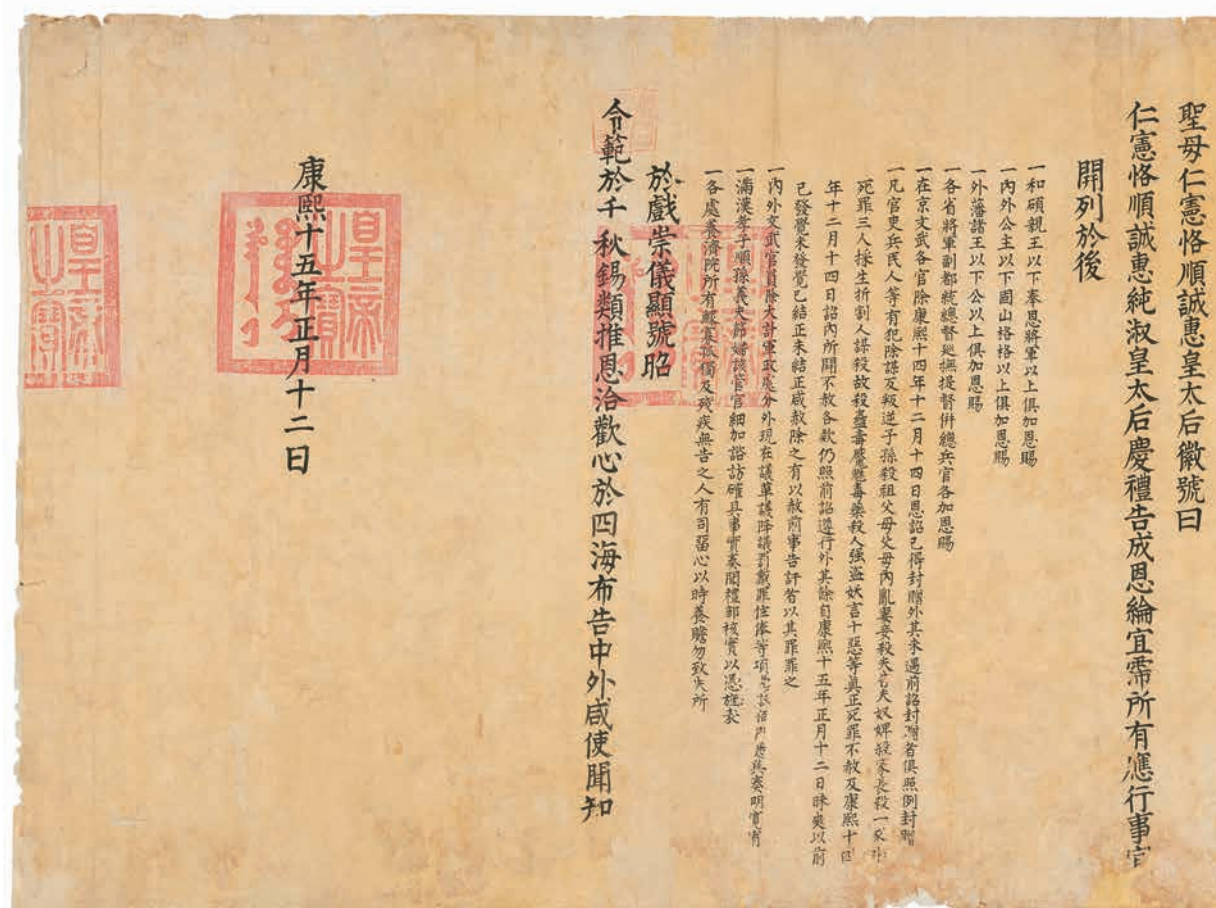 聖母仁憲恪順誠惠皇太后徽號曰
仁憲恪順誠惠純淑皇太后慶禮告成恩綸宜霈所有應行事宜
開列於後
一和碩親王以下奉恩將軍以上俱加恩賜
一內外公主以下固山格格以上俱加恩賜
一外藩諸王以下公以上俱加恩賜
一各省將軍副都統總督巡撫提督併總兵官各加恩賜
一在京文武各官除康熙十四年十二月十四日恩詔已得封贈外其未遇前詔封贈者俱照例封贈
一凡官吏兵民人等有犯除謀反叛逆子孫殺祖父母父母內亂妻妾殺夫告夫奴婢殺家長殺一家非
死罪三人採生折割人謀殺故殺蠱毒魘魅毒藥殺人強盜妖言十惡等真正死罪不赦及康熙十四
年十二月十四日詔內所開不赦各款仍照前詔遵行外其餘自康熙十五年正月十二日昧爽以前
已發覺未發覺已結正未結正咸赦除之有以赦前事告訐者以其罪罪之
一內外文武官員除大計軍政處分外現在議革議降議罰戴罪住俸等項 奏明寬宥
一滿漢孝子順孫義夫節婦該管官細加諮訪確具事實奏聞禮部核實以憑旌表
一各處養濟院所有鰥寡孤獨及殘疾無告之人有司留心以時養贍勿致失所
於戲崇儀顯號昭
令範於千秋錫類推恩洽歡心於四海布告中外咸使聞知
康熙十五年正月十二日
皇帝之寶
皇帝之寶